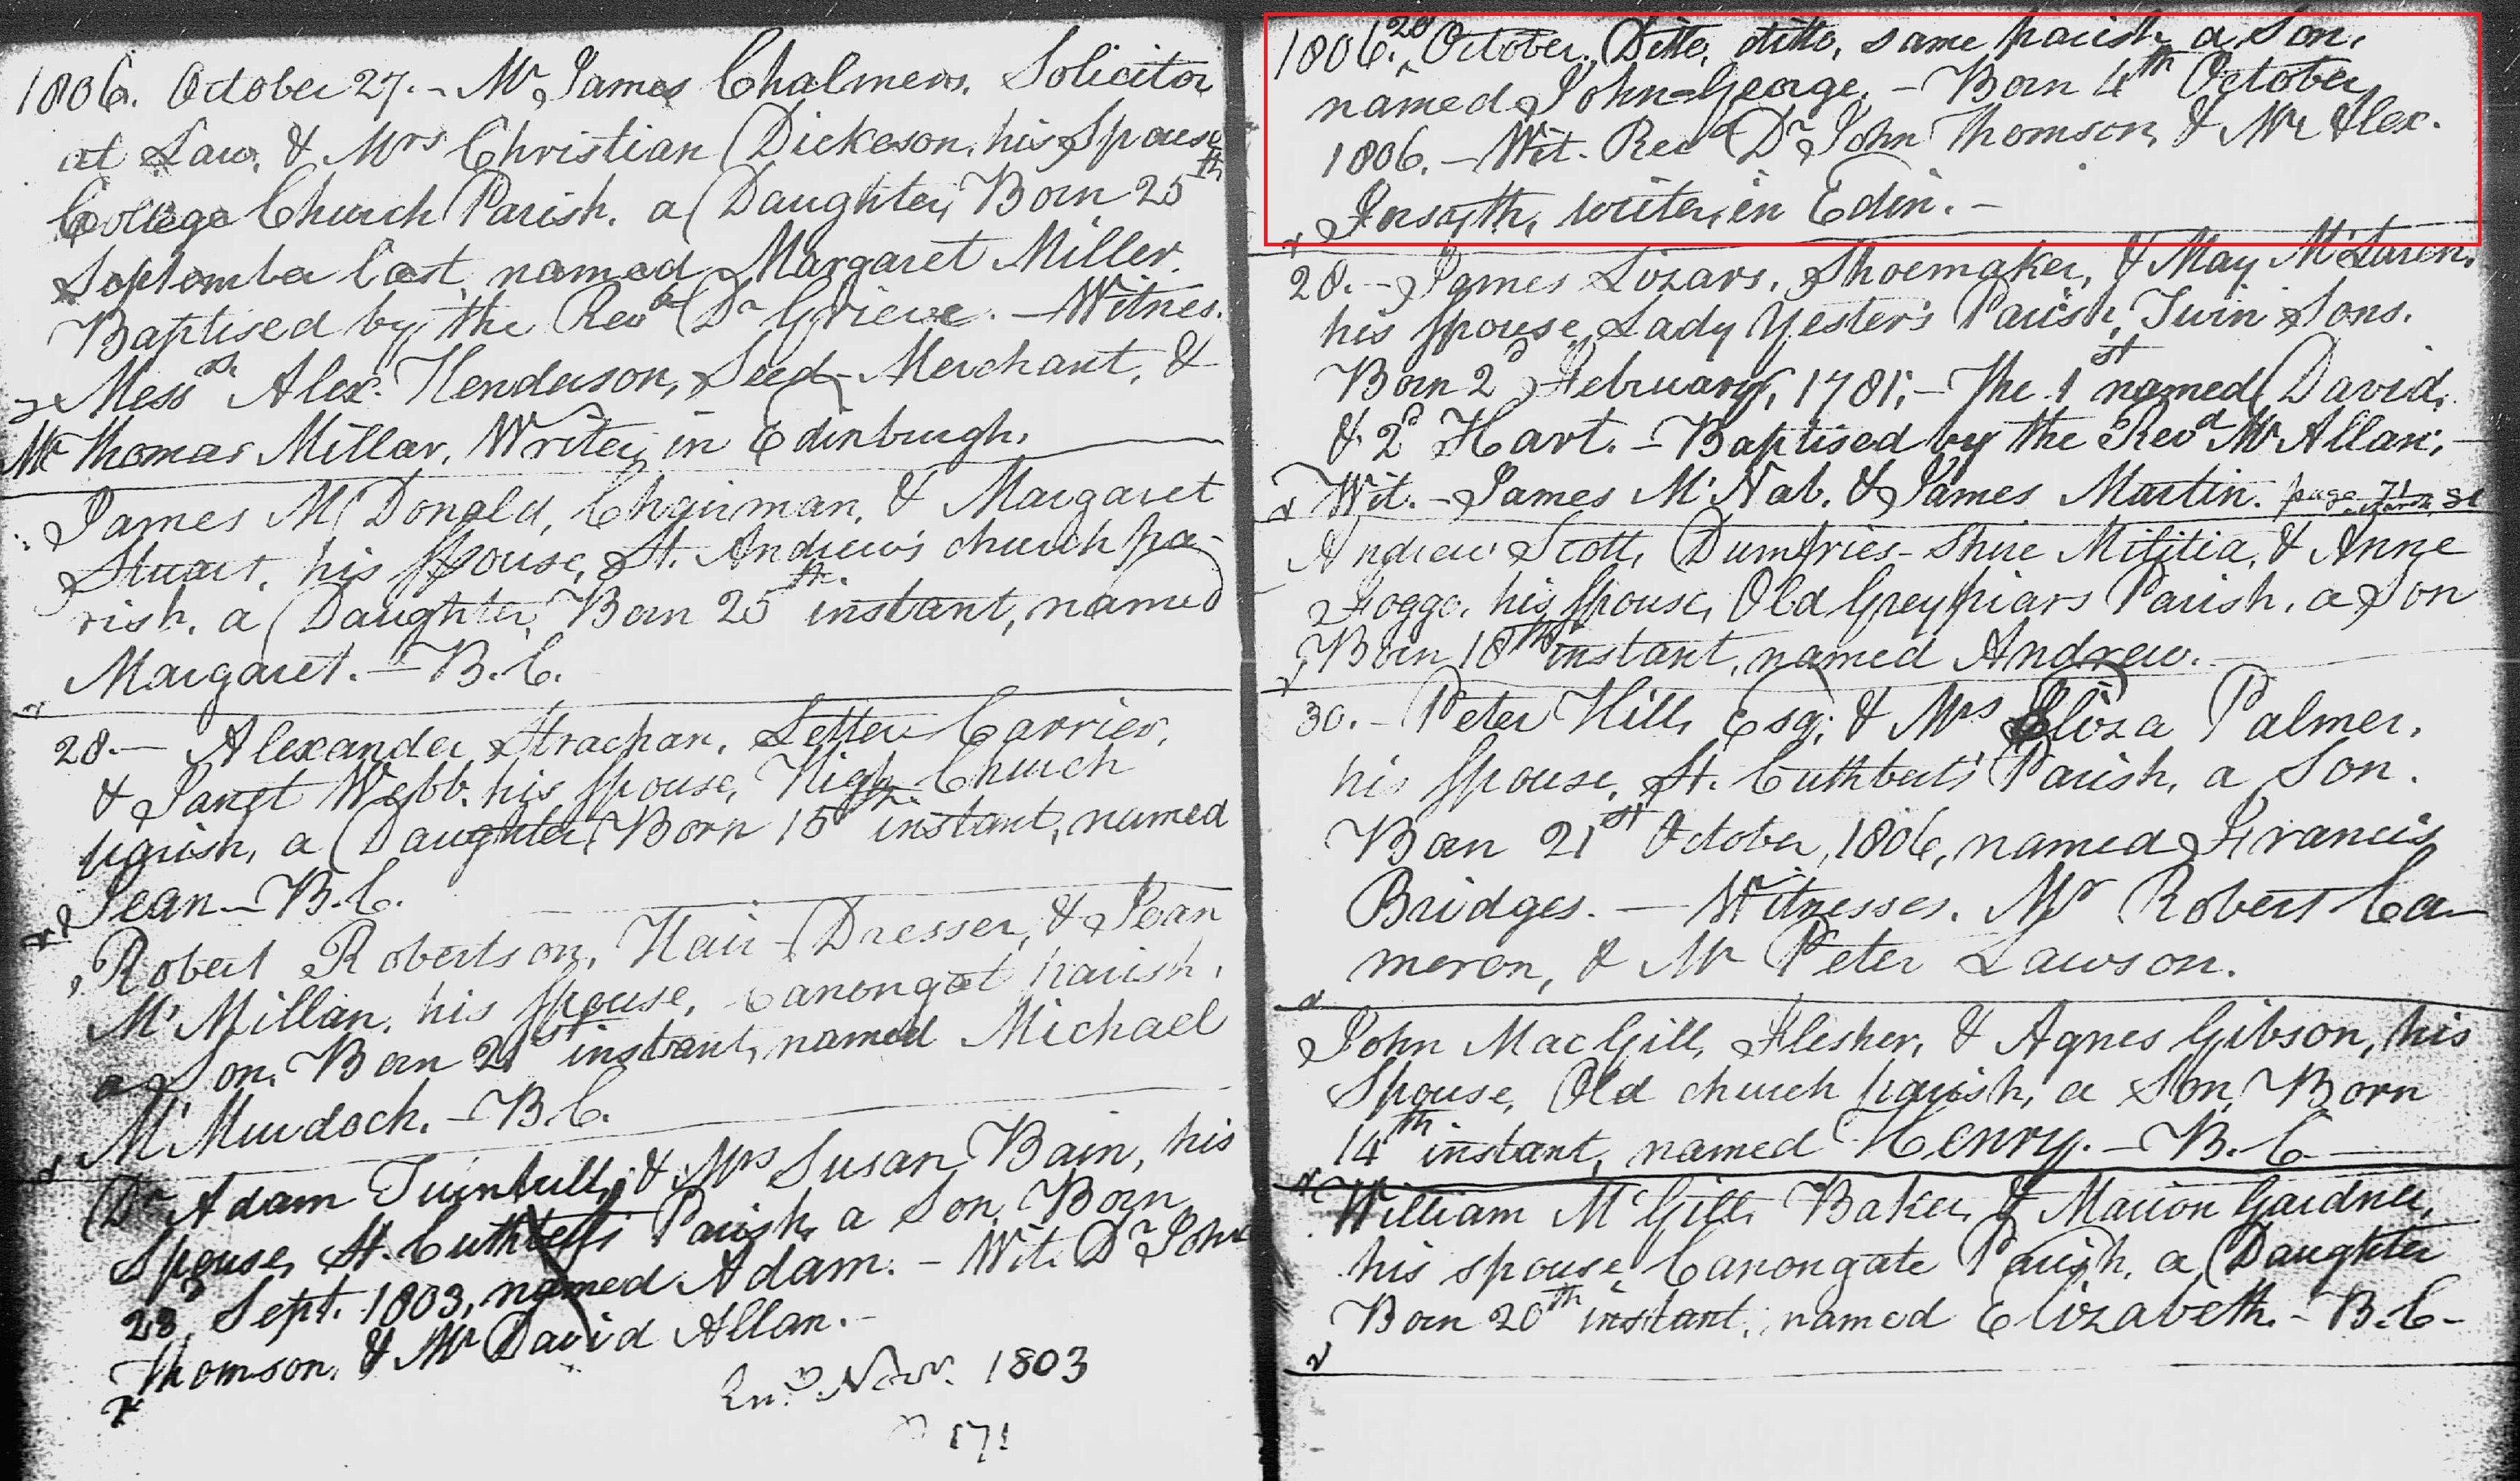 1806. October 27. – Mr James Chalmers, Solicitor
at Law, & Mrs Christian Dickeson, his Spouse
College Church Parish, a Daughter, Born 25th
September last, named Margaret Miller.
Baptised by the Revd Dr Grieve. – Witnes.
Messrs Alex. Henderson, Seed-Merchant, &
Mr Thomas Millar, Writer in Edinburgh.
James McDonald, Chairman, & Margaret
Stuart, his Spouse, St. Andrew's church pa-
rish, a Daughter, Born 25th instant, named
Margaret. – B.C.
28. – Alexander Strachan, Letter Carrier,
& Janet Webb, his Spouse, High Church
parish, a Daughter, Born 15th instant, named
Jean – B.C.
Robert Robertson, Hair-Dresser, & Jean
McMillan, his Spouse, Canongat parish,
a Son, Born 21st instant, named Michael
McMurdoch. – B.C.
Dr Adam Turnbull, & Mrs Susan Bain, his
Spouse, St. Cuthbert's Parish, a Son, Born
23d Sept. 1803, named Adam. – Wit. Dr John
Thomson, & Mr David Allan. –
Nov. 1803
171
1806. 28 October. Ditto, ditto, same parish, a Son,
named John-George. – Born 4th October
1806. – Wit. Revd Dr John Thomson, & Mr Alex.
Forsyth, writer, in Edin. –
28. – James Lizars, Shoemaker, & May McLaren,
his Spouse, Lady Yester's Parish, Twin Sons,
Born 2d February, 1781; – The 1st named David,
& 2d Hart. – Baptised by the Revd Mr Allan; –
Wit. – James McNab, & James Martin. page
Andrew Scott, Dumfries-Shire Militia, & Anne
Foggo, his Spouse, Old Greyfriars Parish, a Son
Born 18th instant, named Andrew. –
30. – Peter Hill, Esq; & Mrs Eliza Palmer,
his Spouse, St. Cuthbert's Parish, a Son.
Born 21st October, 1806, named Francis
Bridges. – Witnesses, Mr Robert Ca-
meron, & Mr Peter Lawson.
John MacGill, Flesher, & Agnes Gibson, his
Spouse, Old church parish, a Son, Born
14th instant, named Henry. – B.C. –
William McGill, Baker, & Marion Gardner,
his spouse, Canongate Parish, a Daughter
Born 20th instant, named Elizabeth. – B.C. –